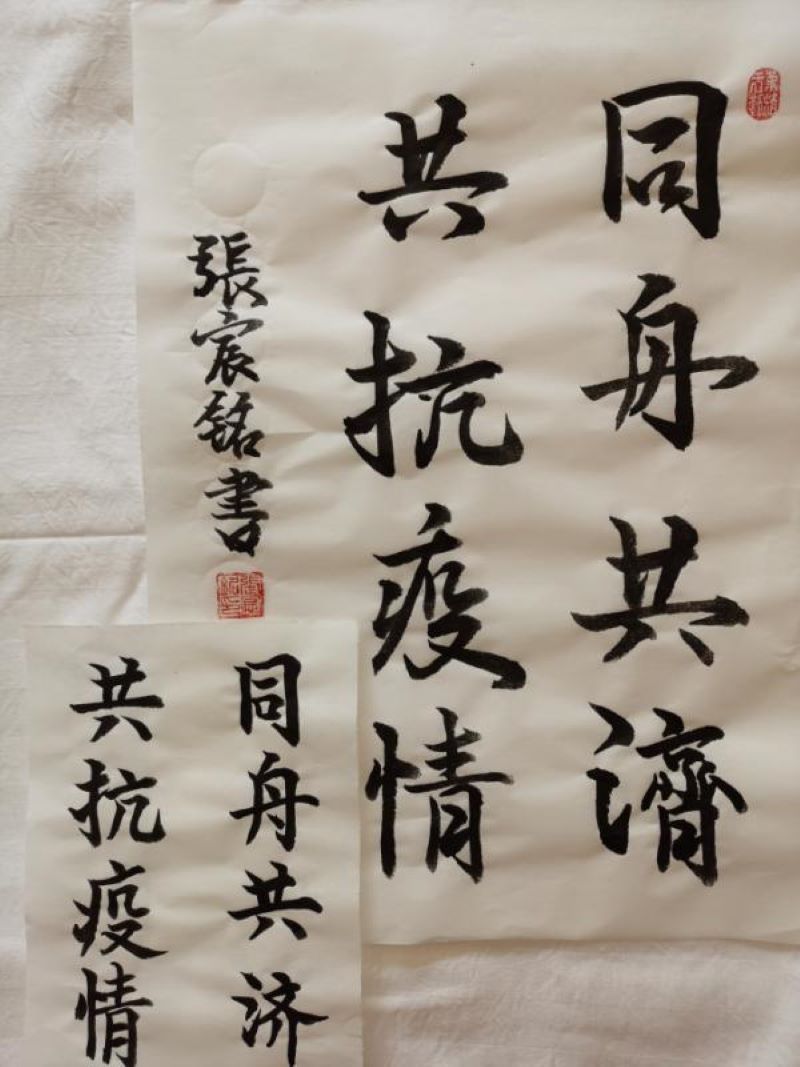 同舟共濟
共抗疫情
張宸銘書
同舟共济
共抗疫情